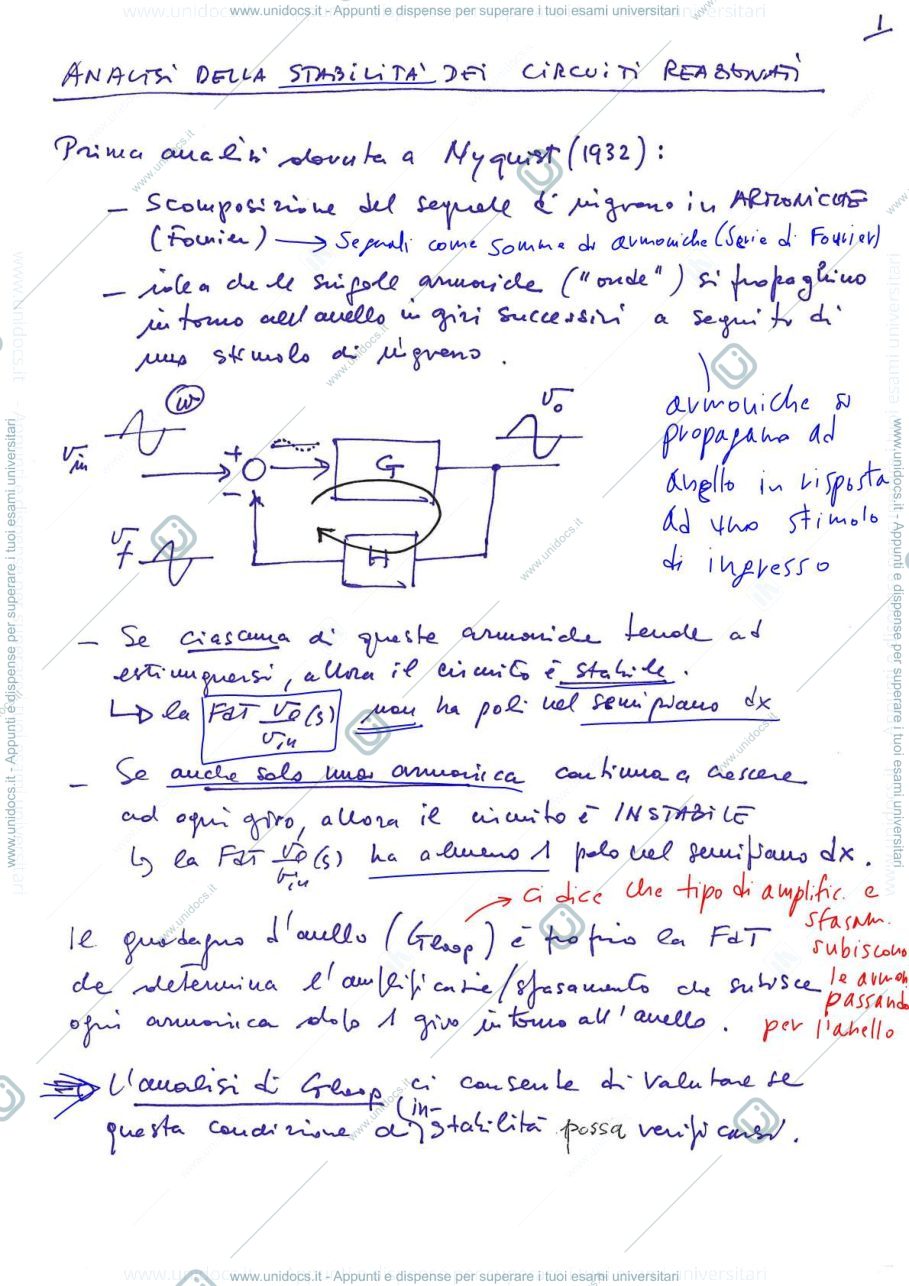 www.unidocs.it - Appunti e dispense per superare i tuoi esami universitari
1
ANALISI DELLA STABILITA' DEI CIRCUITI REAZIONATI
Prima analisi dovuta a Nyquist (1932) :
– Scomposizione del segnale d'ingresso in ARMONICHE
(Fourier) → Segnali come somma di armoniche (Serie di Fourier)
– idea che le singole armoniche ("onde") si propaghino
intorno all'anello in giri successivi a seguito di
uno stimolo di ingresso .
armoniche si
propagano ad
anello in risposta
ad uno stimolo
di ingresso
ω
Vin
+
–
G
Vo
Vf
H
– Se ciascuna di queste armoniche tende ad
estinguersi, allora il circuito è stabile .
↳ la FdT Vo/Vin (s) non ha poli nel semipiano dx
– Se anche solo una armonica continua a crescere
ad ogni giro, allora il circuito è INSTABILE
↳ la FdT Vo/Vin (s) ha almeno 1 polo nel semipiano dx .
→ ci dice che tipo di amplific. e
sfasam.
subiscono
le armon
passando
per l'anello
Il guadagno d'anello (Gloop) è proprio la FdT
che determina l'amplificazione/sfasamento che subisce
ogni armonica dopo 1 giro intorno all'anello .
⇒ L'analisi di Gloop ci consente di valutare se
questa condizione di (in-)stabilità possa verificarsi .
www.unidocs.it - Appunti e dispense per superare i tuoi esami universitari